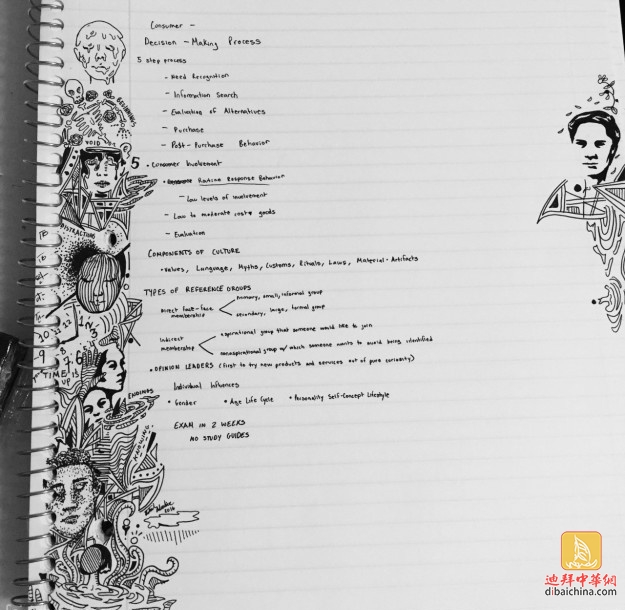 Consumer -
Decision - Making Process
5 step process
- Need Recognition
- Information Search
- Evaluation of Alternatives
- Purchase
- Post-Purchase Behavior
5 • Consumer Involvement
• Routine Response Behavior
- Low levels of involvement
- Low to moderate cost goods
- Evaluation
COMPONENTS OF CULTURE
• Values, Language, Myths, Customs, Rituals, Laws, Material-Artifacts
TYPES OF REFERENCE GROUPS
Direct face-face membership
primary, small, informal group
secondary, large, formal group
Indirect membership
aspirational group that someone would like to join
nonaspirational group w/ which someone wants to avoid being identified
• OPINION LEADERS (first to try new products and services out of pure curiosity)
Individual Influences
• Gender • Age Life Cycle • Personality Self-Concept Lifestyle
EXAM IN 2 WEEKS
NO STUDY GUIDES
BEGINNING
VOID
DISTRACTING
10 11 12 1 2 3
9 8 7 6
TIME IS UP
ENDINGS
KNOWING
2016
迪拜中華網
dibaichina.com